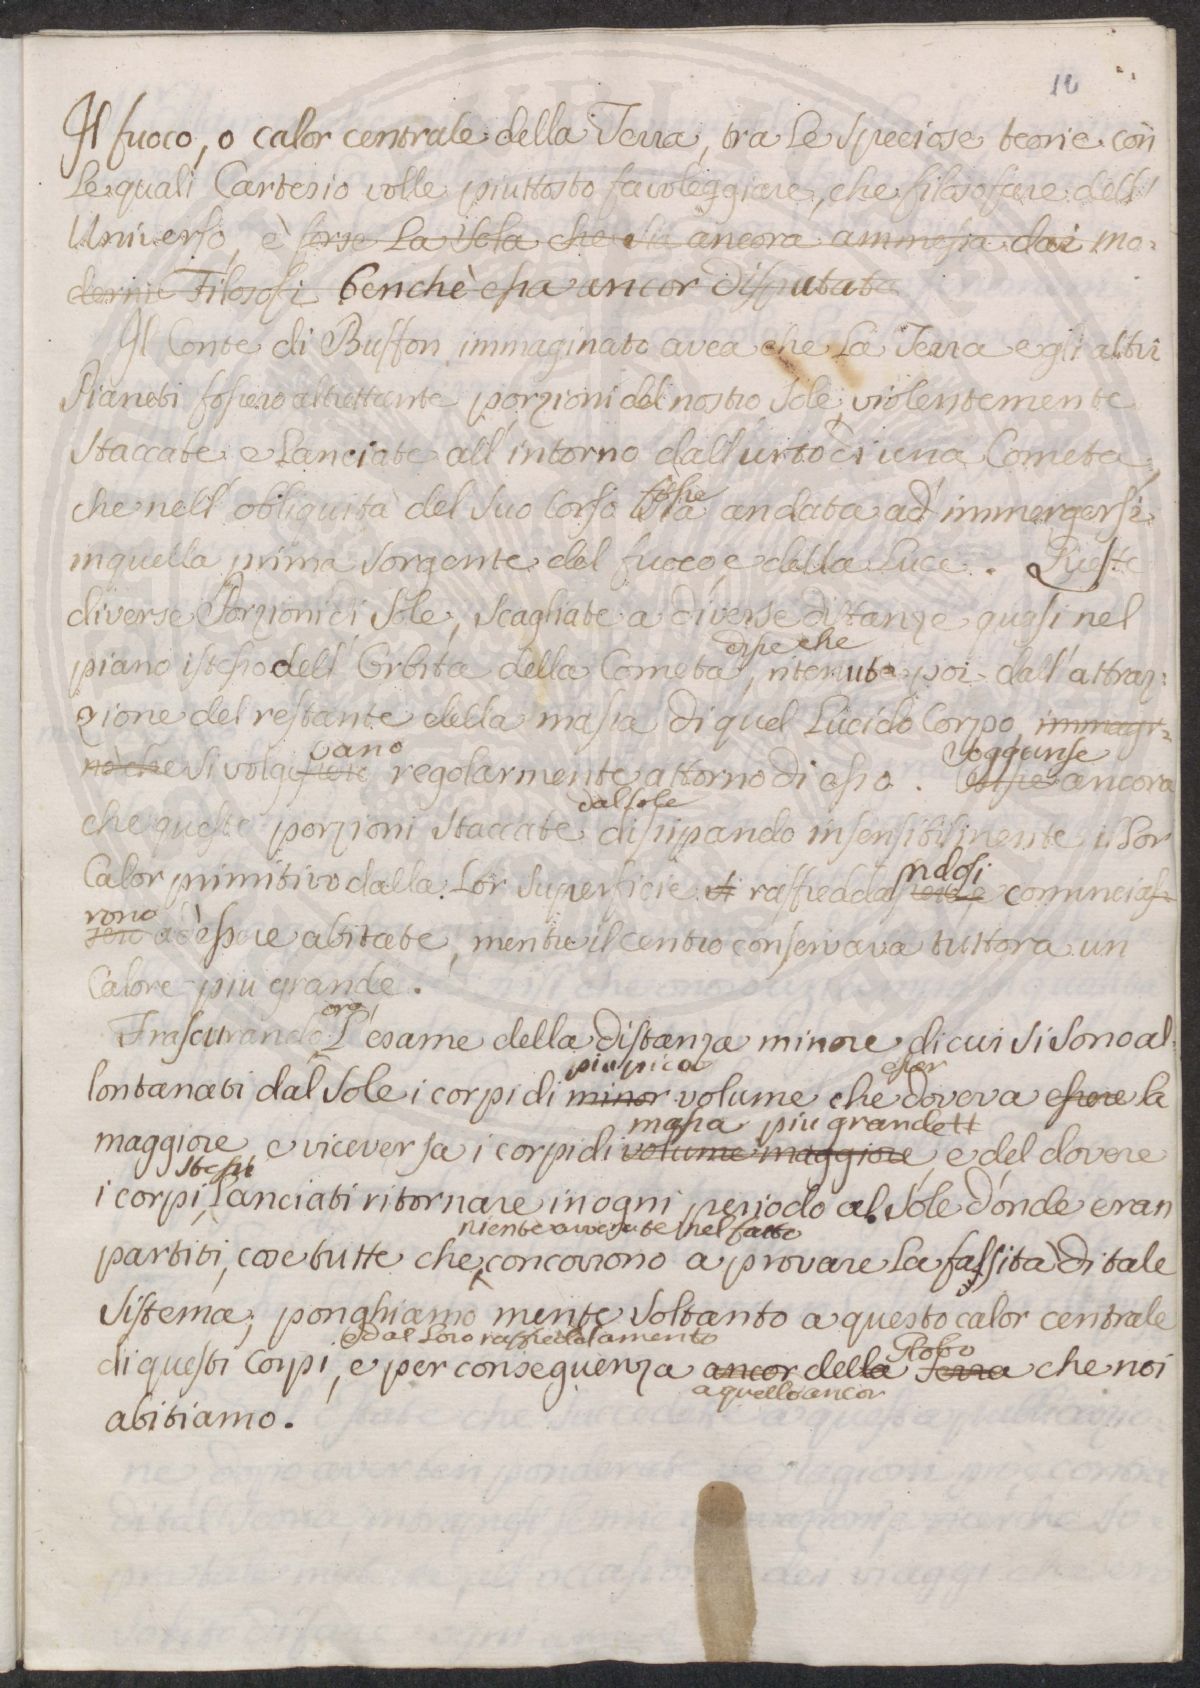 10
Il fuoco, o calor centrale della Terra, tra le speciose teorie con
le quali Cartesio volle piuttosto favoleggiare, che filosofare dell'
Universo, è forse la sola che sia ancora ammessa dai mo-
derni Filosofi benchè essa ancor disputata
Il Conte di Buffon immaginato avea che la Terra e gli altri
Pianeti fossero altrettante porzioni del nostro Sole, violentemente
staccate e lanciate all'intorno dall'urto di una Cometa,
che nell'obliquità del suo Corso sia fosse andata ad immergersi
in quella prima sorgente del fuoco, e della luce. Queste
diverse Porzioni di Sole, scagliate a diverse distanze quasi nel
piano istesso dell'Orbita della Cometa, disse che ritenute poi dall'attraz-
zione del restante della massa di quel Lucido Corpo, immagi-
nò che si volgessero vano regolarmente attorno di esso. Disse soggiunse ancora
che queste porzioni staccate dal sole dissipando insensibilmente il lor
Calor primitivo dalla lor superficie si raffreddassero e ndosi comincias-
sero rono ad essere abitate, mentre il centro conservava tuttora un
Calore più grande.
Trascurando ora l'esame della distanza minore di cui si sono al-
lontanati dal Sole i corpi di minor più picco volume che doveva essere esser la
maggiore e viceversa i corpi di volume maggiore massa più grande, e del dovere
i corpi stessi lanciati ritornare in ogni periodo al Sole dónde eran
partiti, cose tutte che niente avverate nel fatto concorrono a provare la falsità di tale
Sistema; ponghiamo mente soltanto a questo calor centrale
di questi Corpi, e dal loro raffreddamento e per conseguenza ancor a quello ancor della Terra Globo che noi
abitiamo.